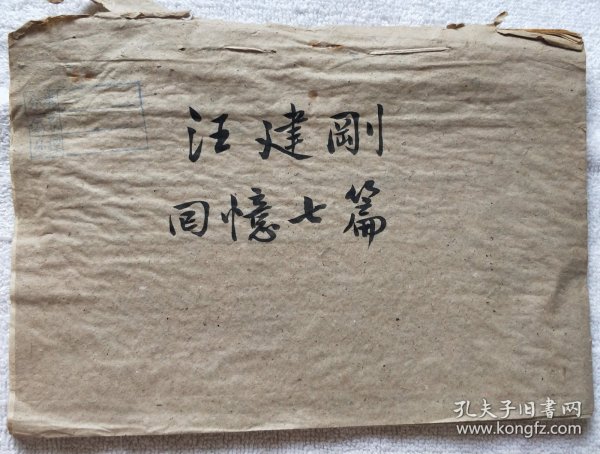 汪建剛
回憶七篇
孔夫子旧書网
www.kongfz.com